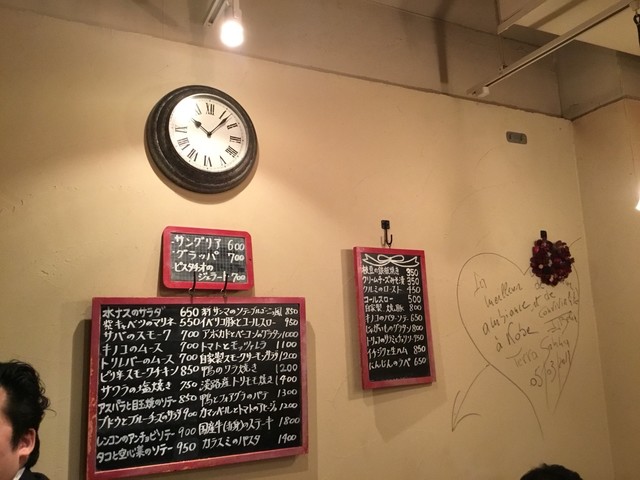 サングリア 600
グラッパ 700
ピスタチオの
ジェラート 700
水ナスのサラダ 650
紫キャベツのマリネ 550
サバのスモーク 700
キノコのムース 700
トリレバーのムース 700
ビリ辛スモークチキン 850
サワラの塩焼き 750
アスパラと目玉焼のソテー 850
ブドウとブルーチーズのサラダ 900
レンコンのアンチョビソテー 900
タコと空心菜のソテー 950
サンマのソテーブルゴーニュ風 850
イベリコ豚とコールスロー 950
アボカドとベーコングラタン 1000
トマトとモッツァレラ 1100
自家製スモークサーモンサラダ 1200
鴨のソテー焼き 1200
淡路産トリモモ焼き 900
鴨とフォアグラのパテ 1300
カマンベールとトマトのアヒージョ 1200
国産牛のステーキ 1800
カラスミのパスタ 1400
350
クリームチーズみそ漬 350
クルミのロースト 450
コールスロー 500
自家製 800
キノコのバターソテー 650
じゃがいものグラタン 800
750
イチジクと生ハム 850
にんじんのラペ 650
La
meilleure
ambiance et de
convivialité
à Kobe